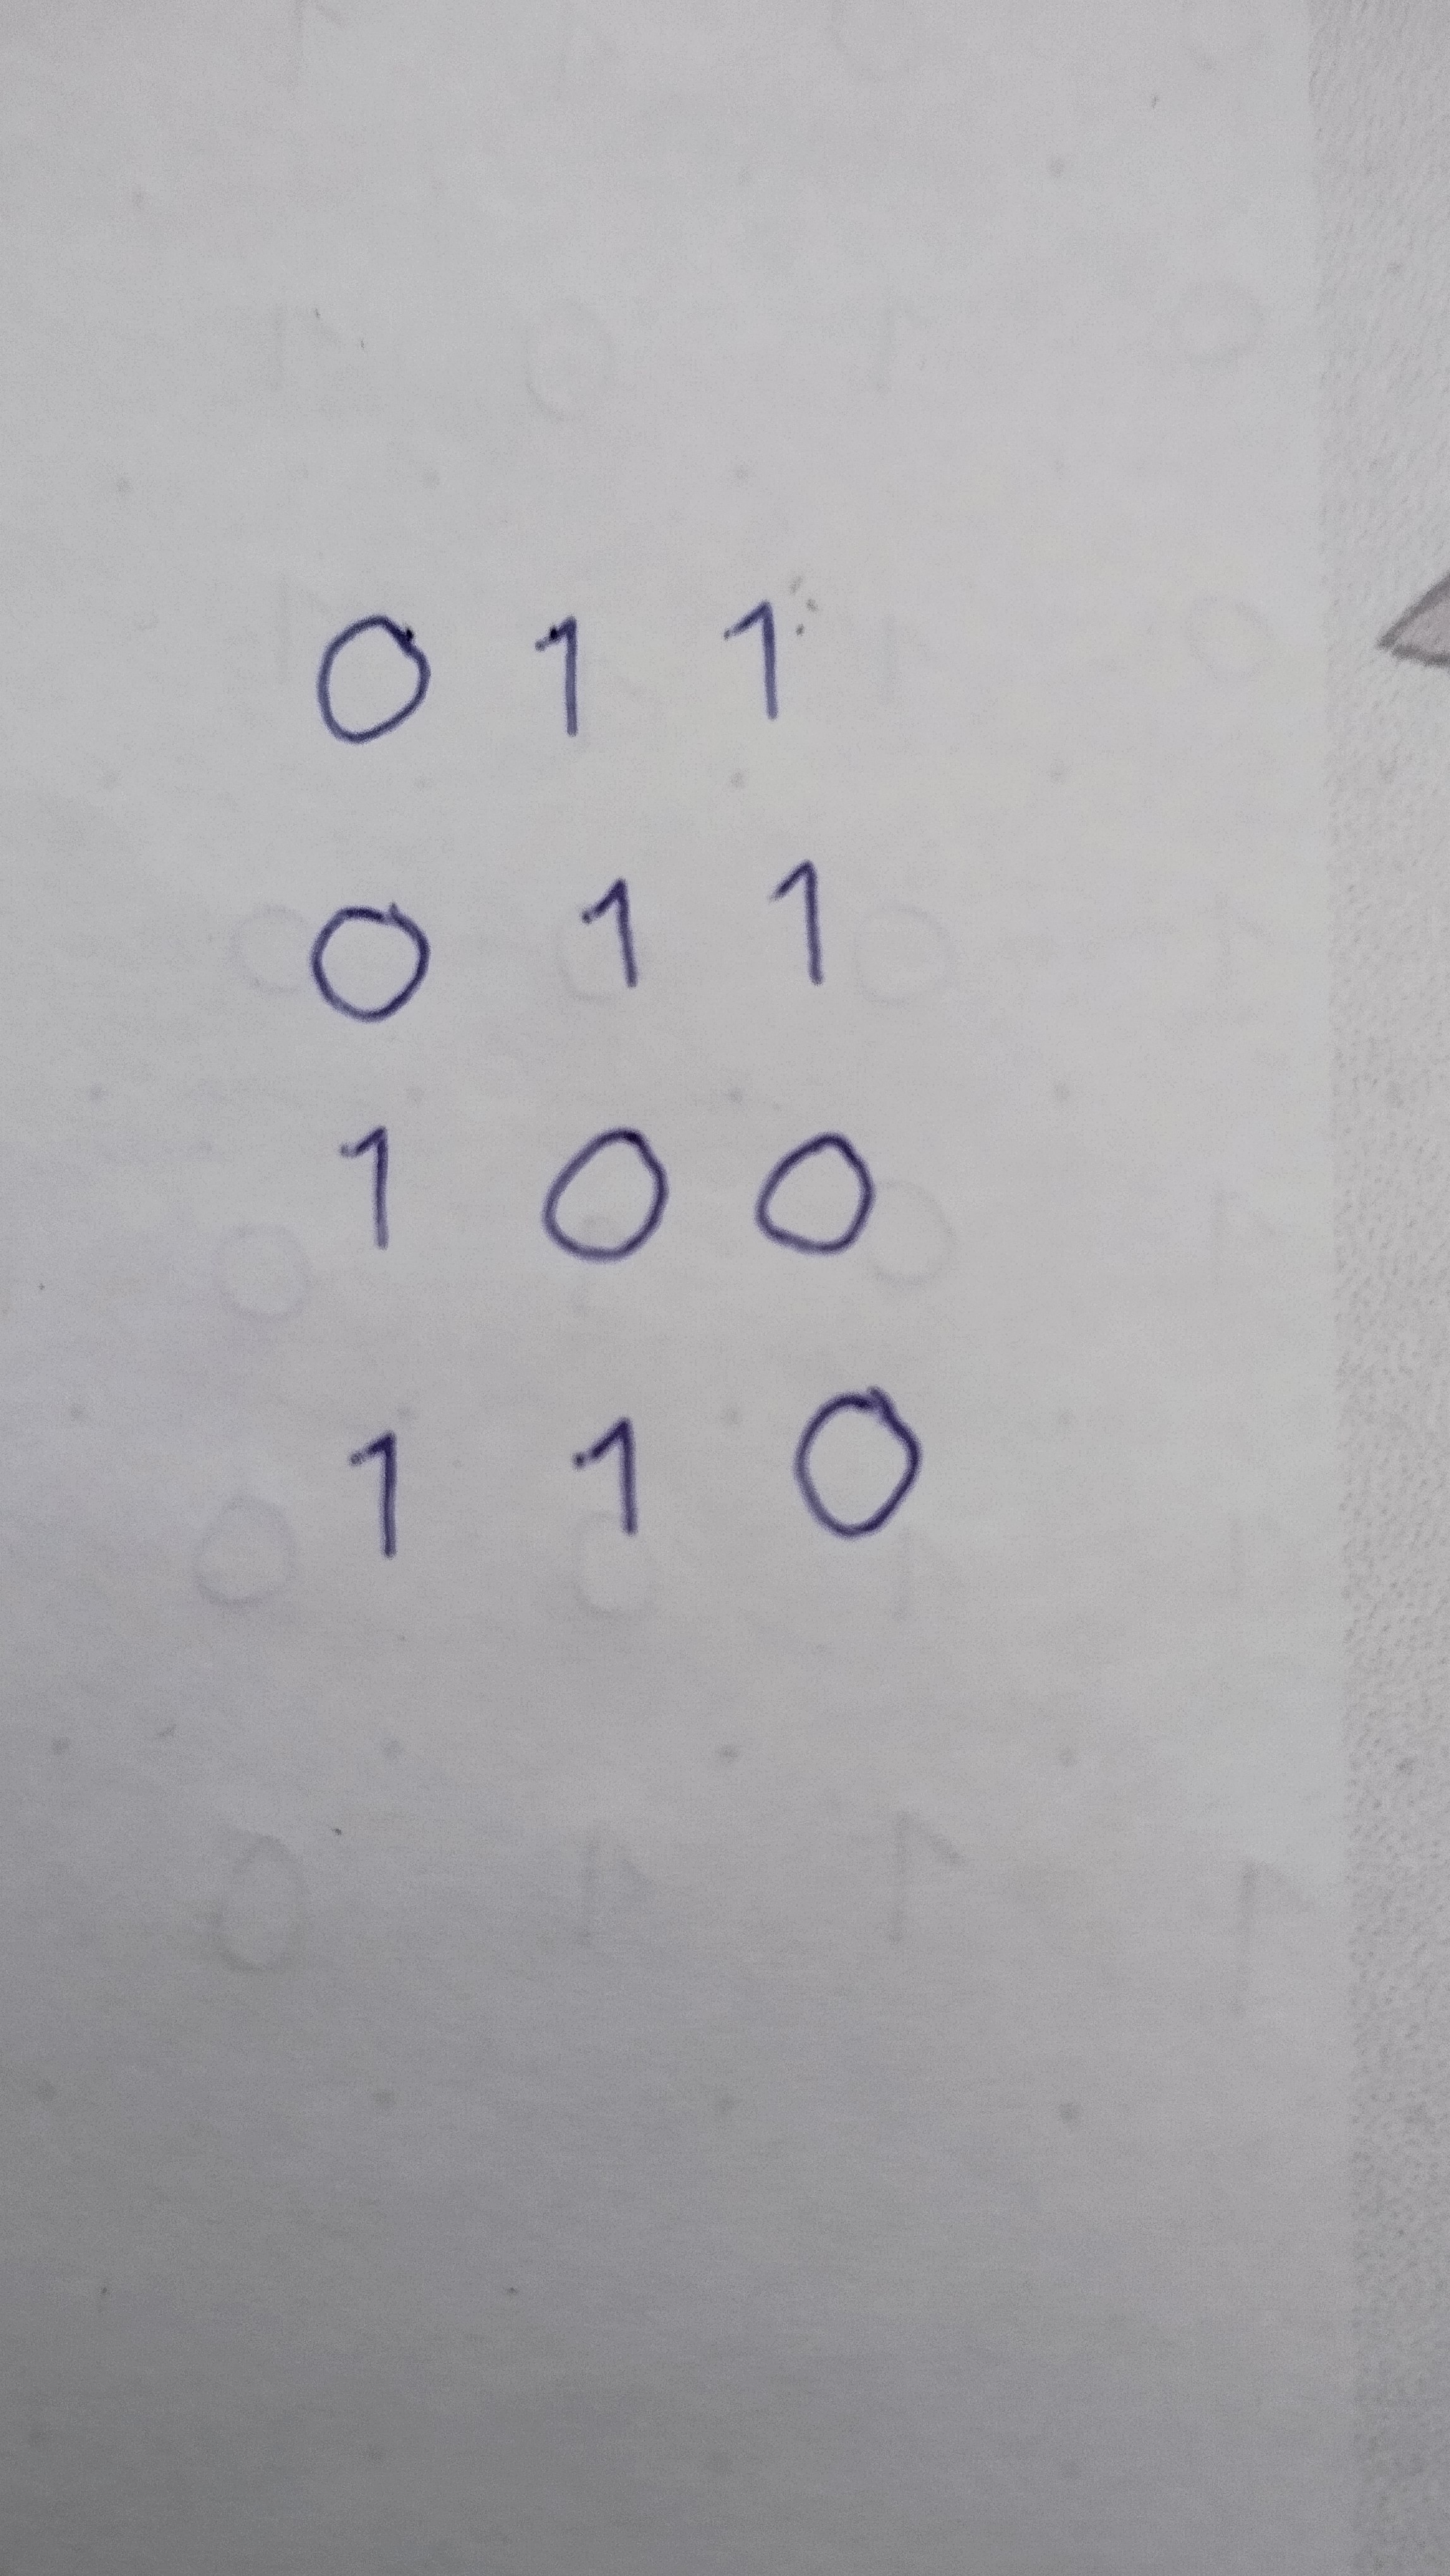 0 1 1
0 1 1
1 0 0
1 1 0